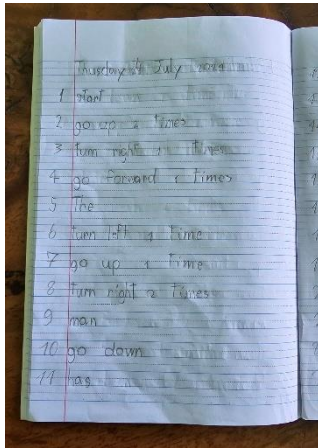 Thursday 4 July 2024
1 start
2 go up 2 times
3 turn right 1 times
4 go forward 1 times
5 The
6 turn left 1 time
7 go up 1 time
8 turn right 2 times
9 man
10 go down
11 has